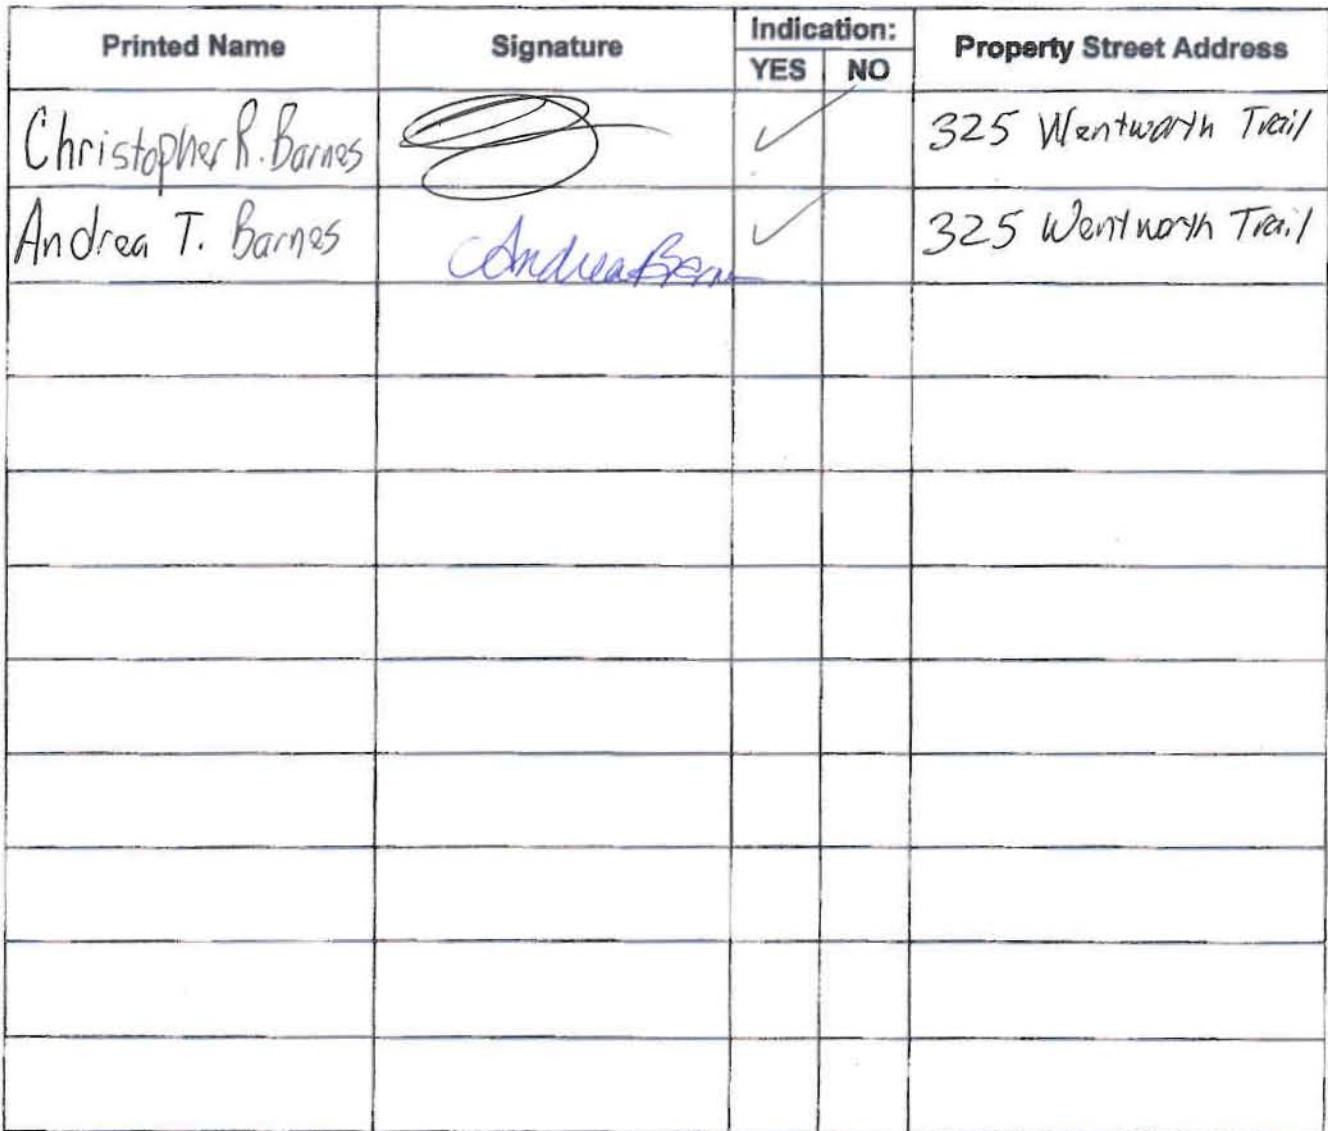 Printed Name Signature Indication: Property Street Address
YES NO
Christopher R. Barnes ✓ 325 Wentworth Trail
Andrea T. Barnes Andrea Barnes ✓ 325 Wentworth Trail